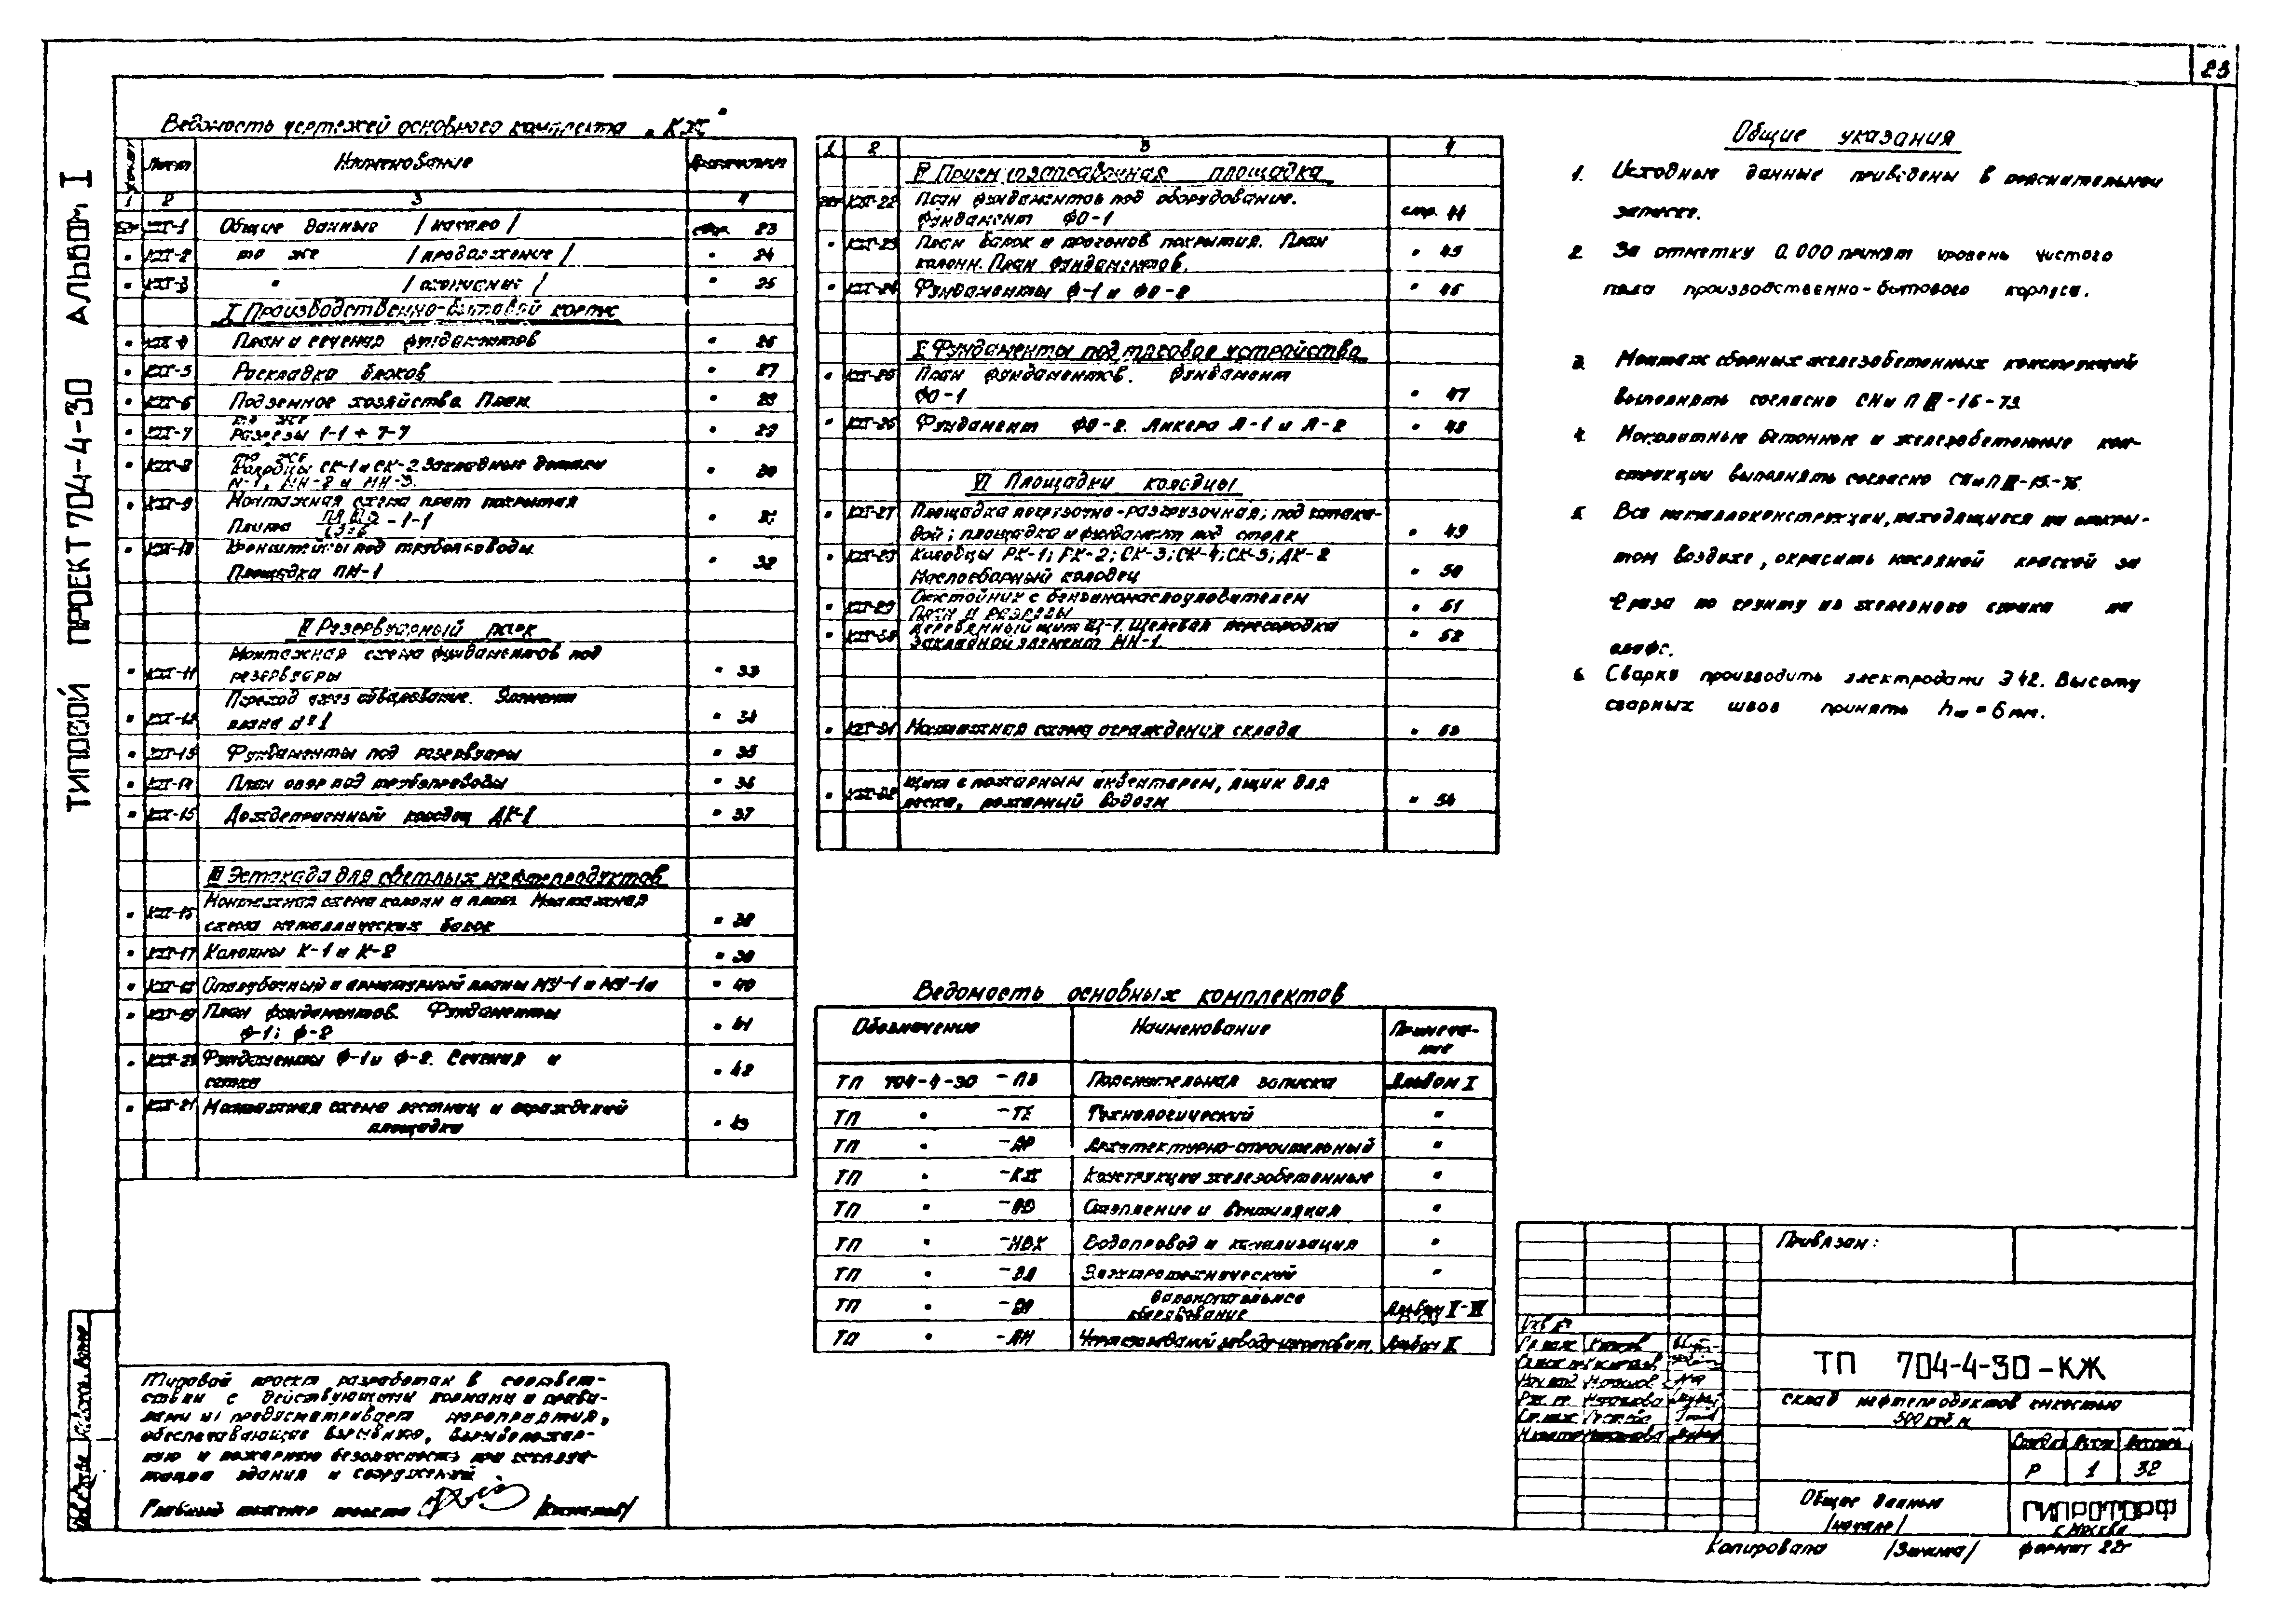 23
ТИПОВОЙ ПРОЕКТ 704-4-30 АЛЬБОМ I
Ведомость чертежей основного комплекта „КЖ"
Лист Наименование
1 2 3 4
КЖ-1 Общие данные /начало/ стр. 23
" КЖ-2 то же /продолжение/ " 24
" КЖ-3 " /окончание/ " 25
I Производственно-бытовой корпус
" КЖ-4 План и сечения фундаментов " 26
" КЖ-5 Раскладка блоков " 27
" КЖ-6 Подземное хозяйство План " 28
" КЖ-7 то же
Разрезы 1-1 ÷ 7-7 " 29
" КЖ-8 то же
Колодцы СК-1 и СК-2 Закладные детали " 30
М-1, МН-2 и МН-3.
" КЖ-9 Монтажная схема плит покрытия
Плита -1-1 " 31
" КЖ-10 Кронштейны под трубопроводы
Площадка ПМ-1 " 32
II Резервуарный парк
Монтажная схема фундаментов под
" КЖ-11 резервуары " 33
Переход через обвалование. Элементы
" КЖ-12 плана №1 " 34
" КЖ-13 Фундаменты под резервуары " 35
" КЖ-14 План опор под трубопроводы " 36
" КЖ-15 Дождеприемный колодец ДК-1 " 37
III Эстакада для светлых нефтепродуктов
" КЖ-16 Монтажная схема колонн и плит Монтажная
схема металлических балок " 38
" КЖ-17 Колонны К-1 и К-2 " 39
" КЖ-18 Опалубочный и арматурный планы МУ-1 и МУ-1а " 40
" КЖ-19 План фундаментов. Фундаменты
Ф-1; Ф-2 " 41
" КЖ-20 Фундаменты Ф-1 и Ф-2. Сечения и
сетки " 42
" КЖ-21 Монтажная схема лестниц и ограждений
площадки " 43
1 2 3 4
IV площадка
КЖ-22 План фундаментов под оборудование.
Фундамент ФО-1 стр. 44
" КЖ-23 План балок и прогонов покрытия. План
колонн. План фундаментов. " 45
" КЖ-24 Фундаменты Ф-1 и ФО-2 " 46
V Фундаменты под тяговое устройство
" КЖ-25 План фундаментов. Фундамент
ФО-1 " 47
" КЖ-26 Фундамент ФО-2. Анкера А-1 и А-2 " 48
VI Площадки колодцы
" КЖ-27 Площадка погрузочно-разгрузочная; под
площадка и фундамент под " 49
" КЖ-28 Колодцы РК-1; РК-2; СК-3; СК-4; СК-5; ДК-2
Маслосборный колодец " 50
" КЖ-29 Отстойник с бензиномаслоуловителем
План и разрезы " 51
" КЖ-30 Деревянный щит Щ-1. Щелевая перегородка
Закладной элемент МН-1. " 52
" КЖ-31 Монтажная схема ограждения склада " 53
" КЖ-32 Щит с пожарным инвентарем, ящик для
песка, пожарный водоем " 54
Ведомость основных комплектов
Обозначение Наименование Примеча-
ние
ТП 704-4-30 -ПЗ Пояснительная записка Альбом I
ТП " -ТХ Технологический "
ТП " -АР Архитектурно-строительный "
ТП " -КЖ Конструкции железобетонные "
ТП " -ОВ Отопление и вентиляция "
ТП " -НВК Водопровод и канализация "
ТП " Электротехнический "
ТП " оборудование Альбом
ТП " Альбом II
Общие указания
1. Исходные данные приведены в пояснительной
записке.
2 За отметку 0.000 принят уровень чистого
пола производственно-бытового корпуса.
3 Монтаж сборных железобетонных конструкций
выполнять согласно СНиП III-16-73
4. Монолитные бетонные и железобетонные кон-
струкции выполнять согласно СНиП III-15-76.
5 Все металлоконструкции, находящиеся на откры-
том воздухе, окрасить масляной краской за
2 раза по грунту из железного сурика на
олифе.
6 Сварку производить электродами Э42. Высоту
сварных швов принять hш = 6 мм.
Типовой проект разработан в соответ-
ствии с действующими нормами и прави-
лами и предусматривает мероприятия,
обеспечивающие взрывную, взрывопожар-
ную и пожарную безопасность при эксплуа-
тации здания и сооружений
Главный инженер проекта
Привязан:
Инв №
ТП 704-4-30-КЖ
Склад нефтепродуктов емкостью
500 куб.м
Стадия Лист Листов
Р 1 32
Общие данные
/начало/
ГИПРОТОРФ
г. Москва
Копировала формат 22г